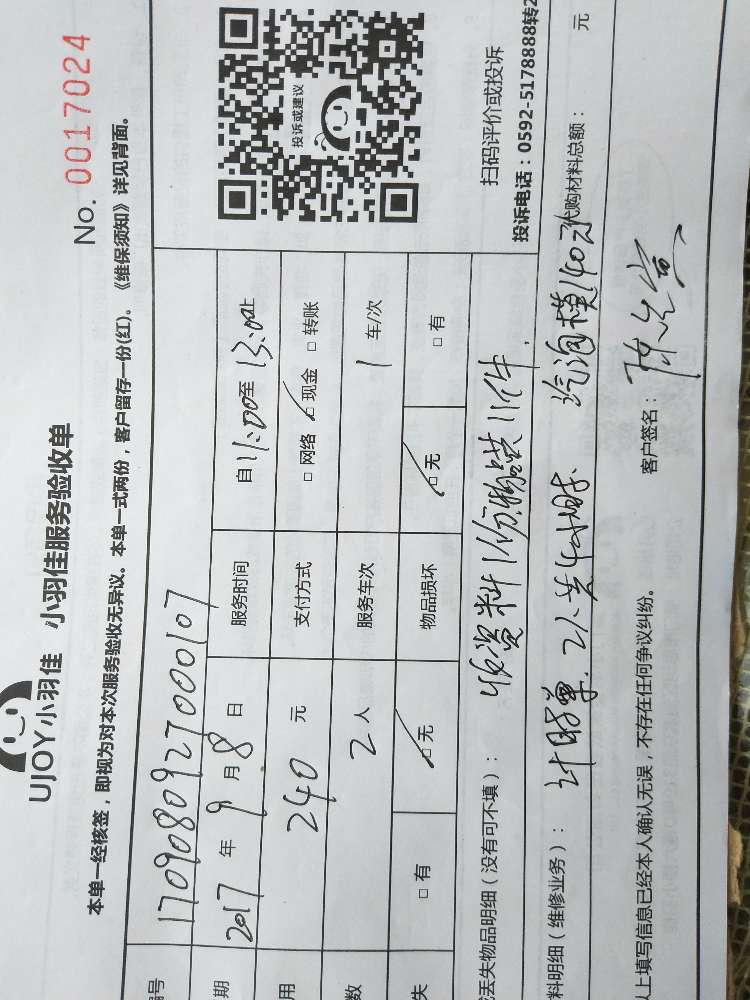 UJOY小羽佳 小羽佳服务验收单
No. 0017024
本单一经核签，即视为对本次服务验收无异议。本单一式两份，客户留存一份(红)。《维保须知》详见背面。
编号 1709080927000107
期 2017 年 9 月 8 日 服务时间 自 11:00 至 13:00 止
用 240 元 支付方式 □ 网络 ☑ 现金 □ 转账
数 2 人 服务车次 1 车/次
失 □ 有 ☑ 无 物品损坏 ☑ 无 □ 有
投诉或建议
扫码评价或投诉
投诉电话：0592-5178888转2
或丢失物品明细（没有可不填）： 收资料1份
料明细（维修业务）： 计时单. 2人 140元 代购材料总额： 元
以上填写信息已经本人确认无误，不存在任何争议纠纷。 客户签名：